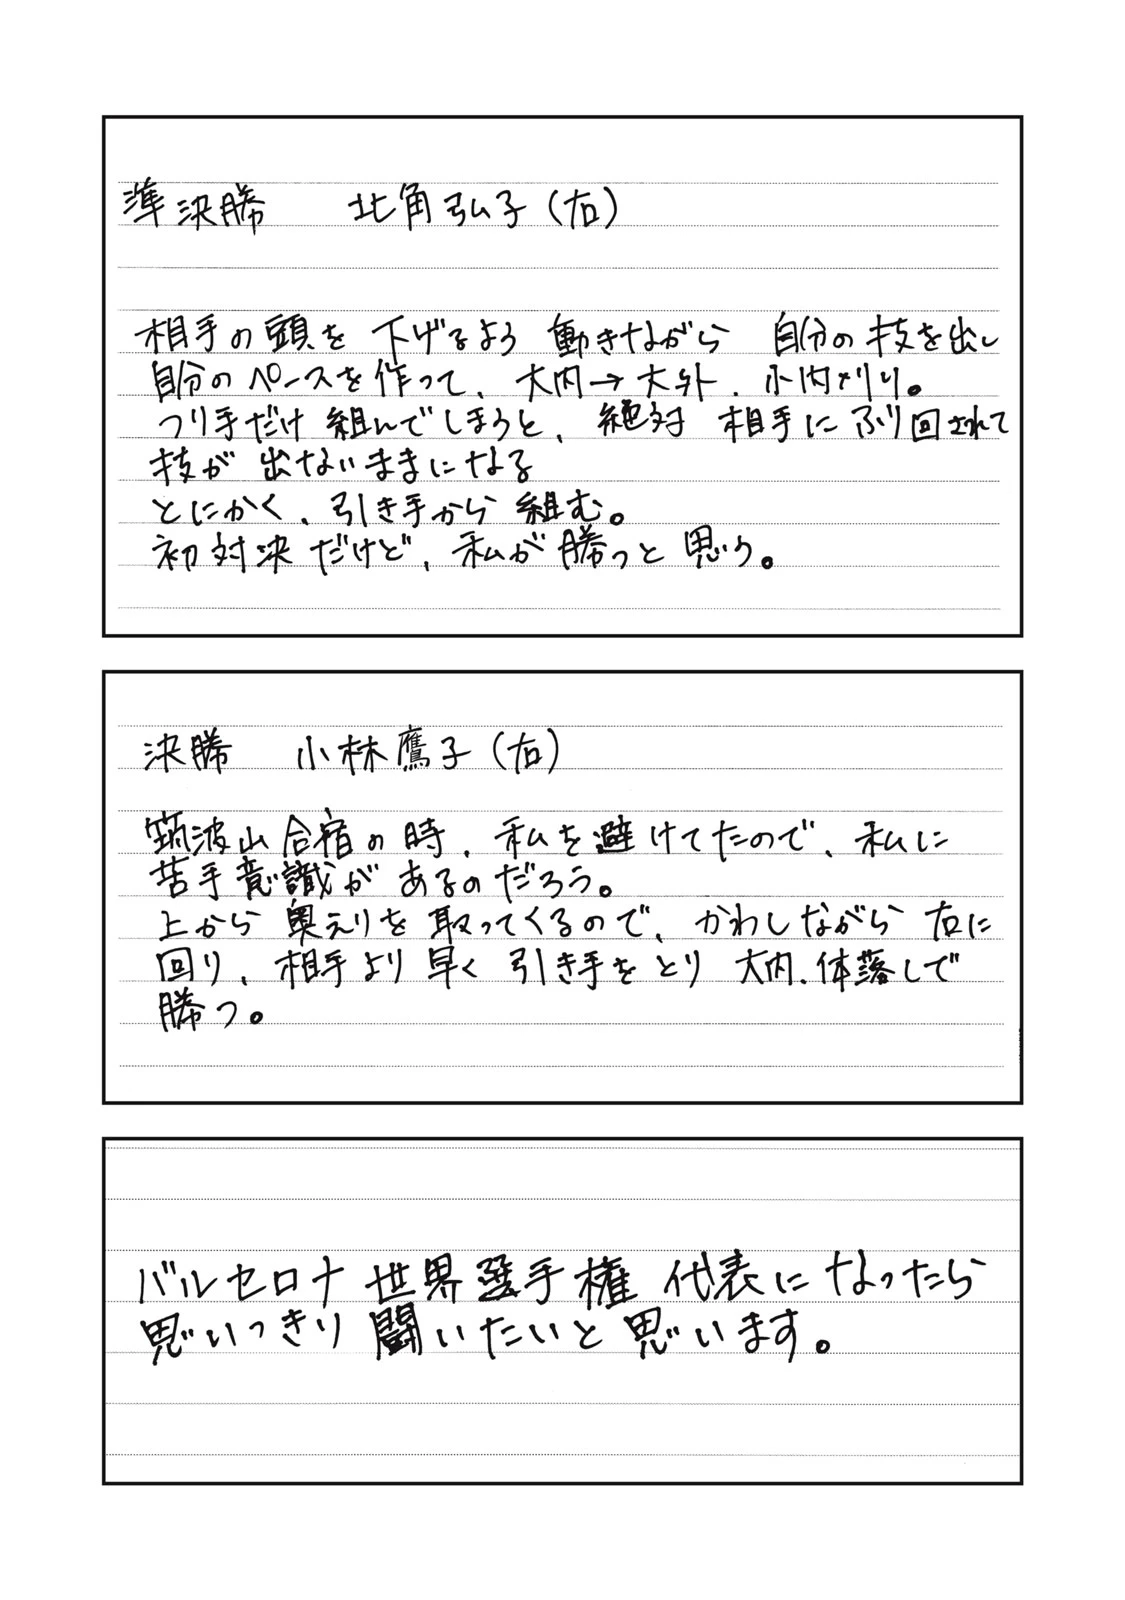 準決勝　　北角弘子（右）
相手の頭を 下げるよう 動きながら 自分の技を出し
自分のペースを作って、大内→大外、小内刈り。
つり手だけ 組んでしまうと、絶対 相手に ふり回されて
技が 出ないままになる
とにかく、引き手から 組む。
初対決だけど、私が勝つと思う。
決勝　　小林鷹子（右）
筑波山合宿の時、私を避けてたので、私に
苦手意識が あるのだろう。
上から 奥えりを 取ってくるので、かわしながら 右に
回り、相手より 早く 引き手を とり 大内、体落しで
勝つ。
バルセロナ 世界選手権 代表に なったら
思いっきり 闘いたいと 思います。